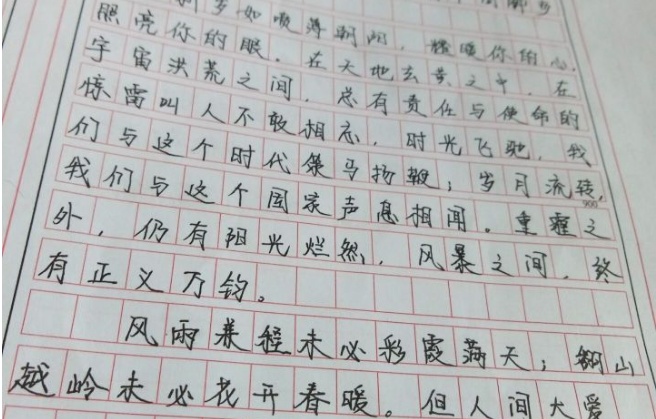 如喷薄朝阳，温暖你的心，
照亮你的眼。在天地玄黄之中，在
宇宙洪荒之间，总有责任与使命的
惊雷叫人不敢相忘，时光飞驰，我
们与这个时代策马扬鞭；岁月流转，
我们与这个国家声息相闻。重霾之
外，仍有阳光烂然，风暴之间，终
有正义万钧。
风雨兼程未必彩霞满天；翻山
越岭未必花开春暖。但人间大爱